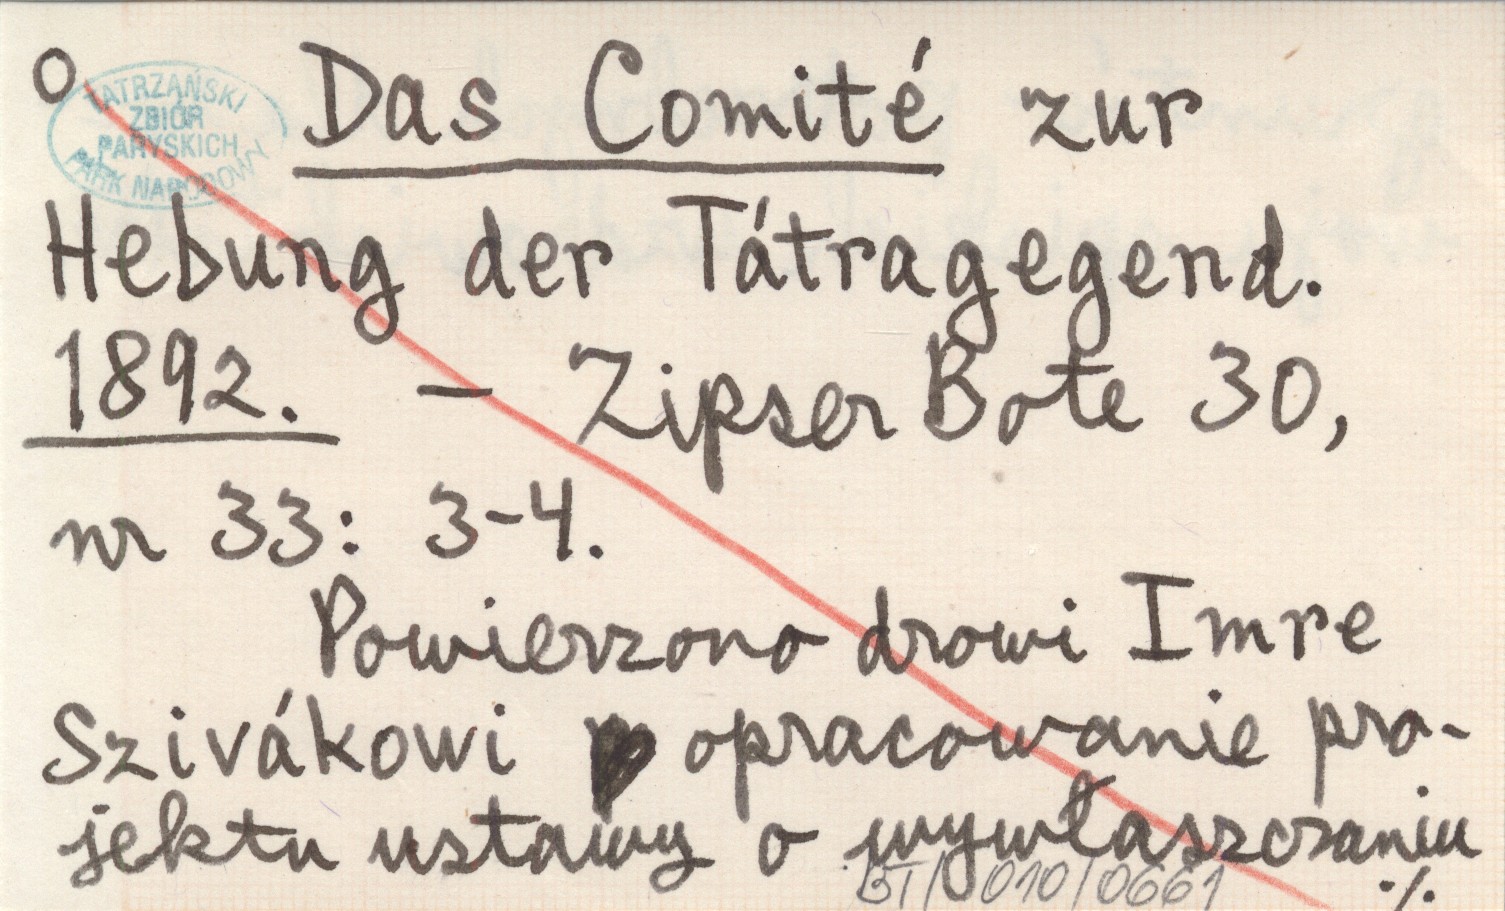 O
TATRZAŃSKI
ZBIÓR
PARYSKICH
PARK NARODOWY
Das Comité zur
Hebung der Tátragegend.
1892. – Zipser Bote 30,
nr 33: 3-4.
Powierzono drowi Imre
Szivákowi opracowanie pro-
jektu ustawy o wywłaszczaniu
BT/010/0661 ./.